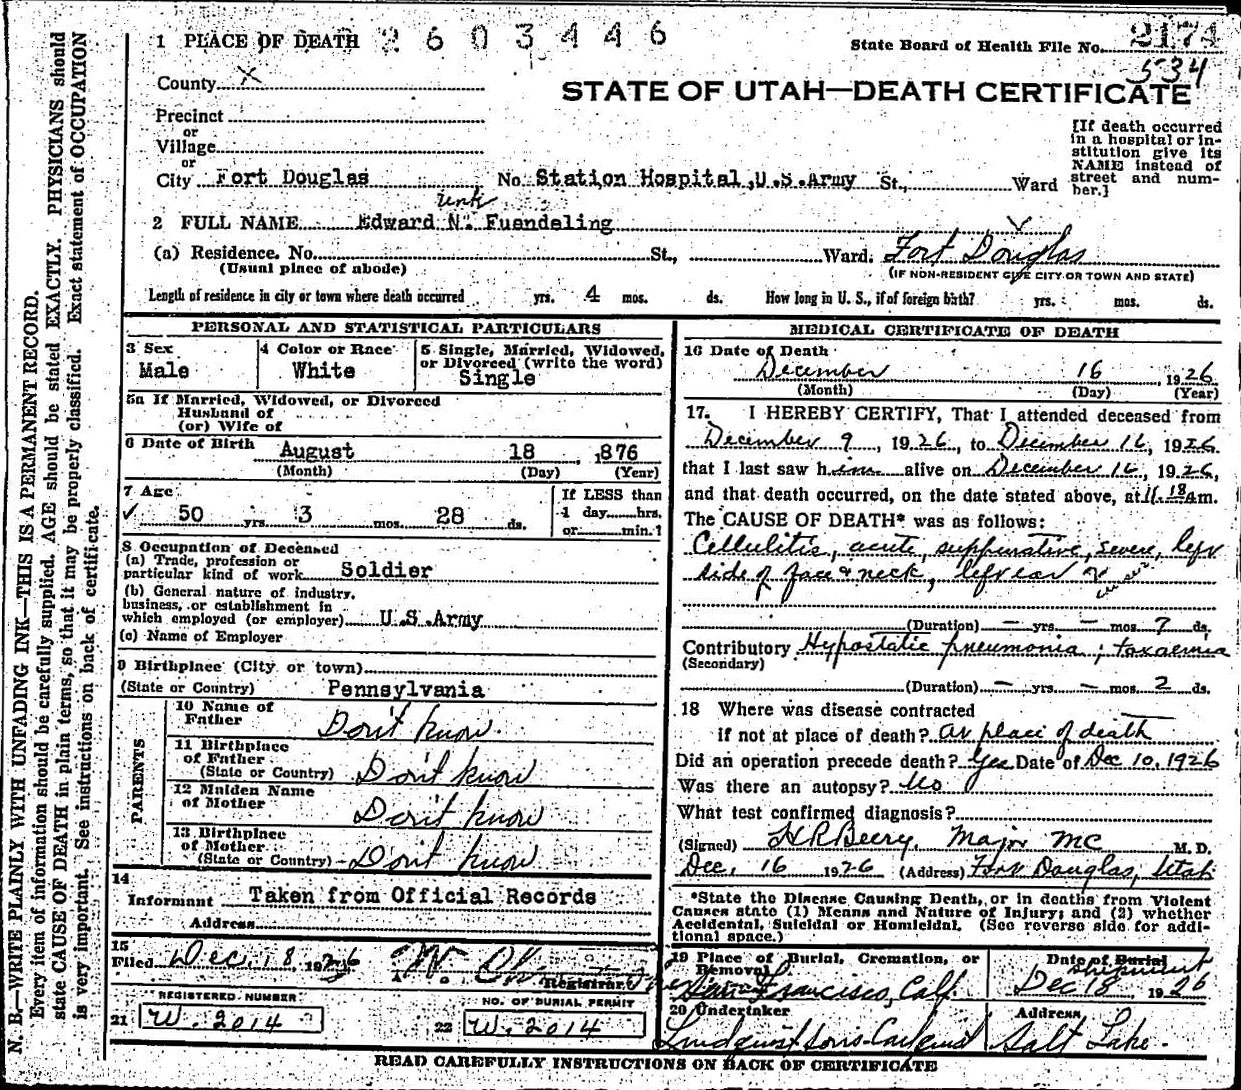 1 PLACE OF DEATH 2603446
State Board of Health File No. 2174
534
County X
STATE OF UTAH—DEATH CERTIFICATE
Precinct
or
Village
or
City Fort Douglas No. Station Hospital, U.S. Army St., Ward
[If death occurred in a hospital or institution give its NAME instead of street and number.]
unk
2 FULL NAME Edward N. Fuendeling
(a) Residence. No. St., Ward. Fort Douglas
(Usual place of abode) (IF NON-RESIDENT GIVE CITY OR TOWN AND STATE)
Length of residence in city or town where death occurred yrs. 4 mos. ds. How long in U. S., if of foreign birth? yrs. mos. ds.
PERSONAL AND STATISTICAL PARTICULARS
3 Sex
Male
4 Color or Race
White
5 Single, Married, Widowed,
or Divorced (write the word)
Single
5a If Married, Widowed, or Divorced
Husband of
(or) Wife of
6 Date of Birth August 18 1876
(Month) (Day) (Year)
7 Age
✓ 50 yrs. 3 mos. 28 ds.
If LESS than
1 day......hrs.
or......min.?
8 Occupation of Deceased
(a) Trade, profession or
particular kind of work Soldier
(b) General nature of industry,
business, or establishment in
which employed (or employer) U.S.Army
(c) Name of Employer
9 Birthplace (City or town)
(State or Country) Pennsylvania
PARENTS
10 Name of
Father Don't know.
11 Birthplace
of Father
(State or Country) Don't know
12 Maiden Name
of Mother Don't know
13 Birthplace
of Mother
(State or Country) Don't know
14
Informant Taken from Official Records
Address
15
Filed Dec. 18 1926
Registrar
REGISTERED NUMBER
21 W. 2014
NO. OF BURIAL PERMIT
22 W. 2014
MEDICAL CERTIFICATE OF DEATH
16 Date of Death
December 16, 1926
(Month) (Day) (Year)
17. I HEREBY CERTIFY, That I attended deceased from
December 9, 1926, to December 16, 1926
that I last saw him alive on December 16, 1926,
and that death occurred, on the date stated above, at 11.18 am.
The CAUSE OF DEATH* was as follows:
Cellulitis, acute, suppurative, severe, left
side of face & neck, left ear
(Duration) — yrs. — mos. 7 ds.
Contributory Hypostatic pneumonia; toxaemia
(Secondary)
(Duration) — yrs. — mos. 2 ds.
18 Where was disease contracted
if not at place of death? At place of death
Did an operation precede death? Yes Date of Dec 10, 1926
Was there an autopsy? No
What test confirmed diagnosis?
(Signed) H R Beery, Major MC M. D.
Dec. 16 1926 (Address) Fort Douglas, Utah
*State the Disease Causing Death, or in deaths from Violent
Causes state (1) Means and Nature of Injury; and (2) whether
Accidental, Suicidal or Homicidal. (See reverse side for addi-
tional space.)
19 Place of Burial, Cremation, or
Removal
San Francisco, Calf.
Date of Burial
shipment
Dec 18 1926
20 Undertaker
Lindquist Sons
Address
Salt Lake.
READ CAREFULLY INSTRUCTIONS ON BACK OF CERTIFICATE
N. B.—WRITE PLAINLY WITH UNFADING INK—THIS IS A PERMANENT RECORD.
Every item of information should be carefully supplied. AGE should be stated EXACTLY. PHYSICIANS should
state CAUSE OF DEATH in plain terms, so that it may be properly classified. Exact statement of OCCUPATION
is very important. See instructions on back of certificate.